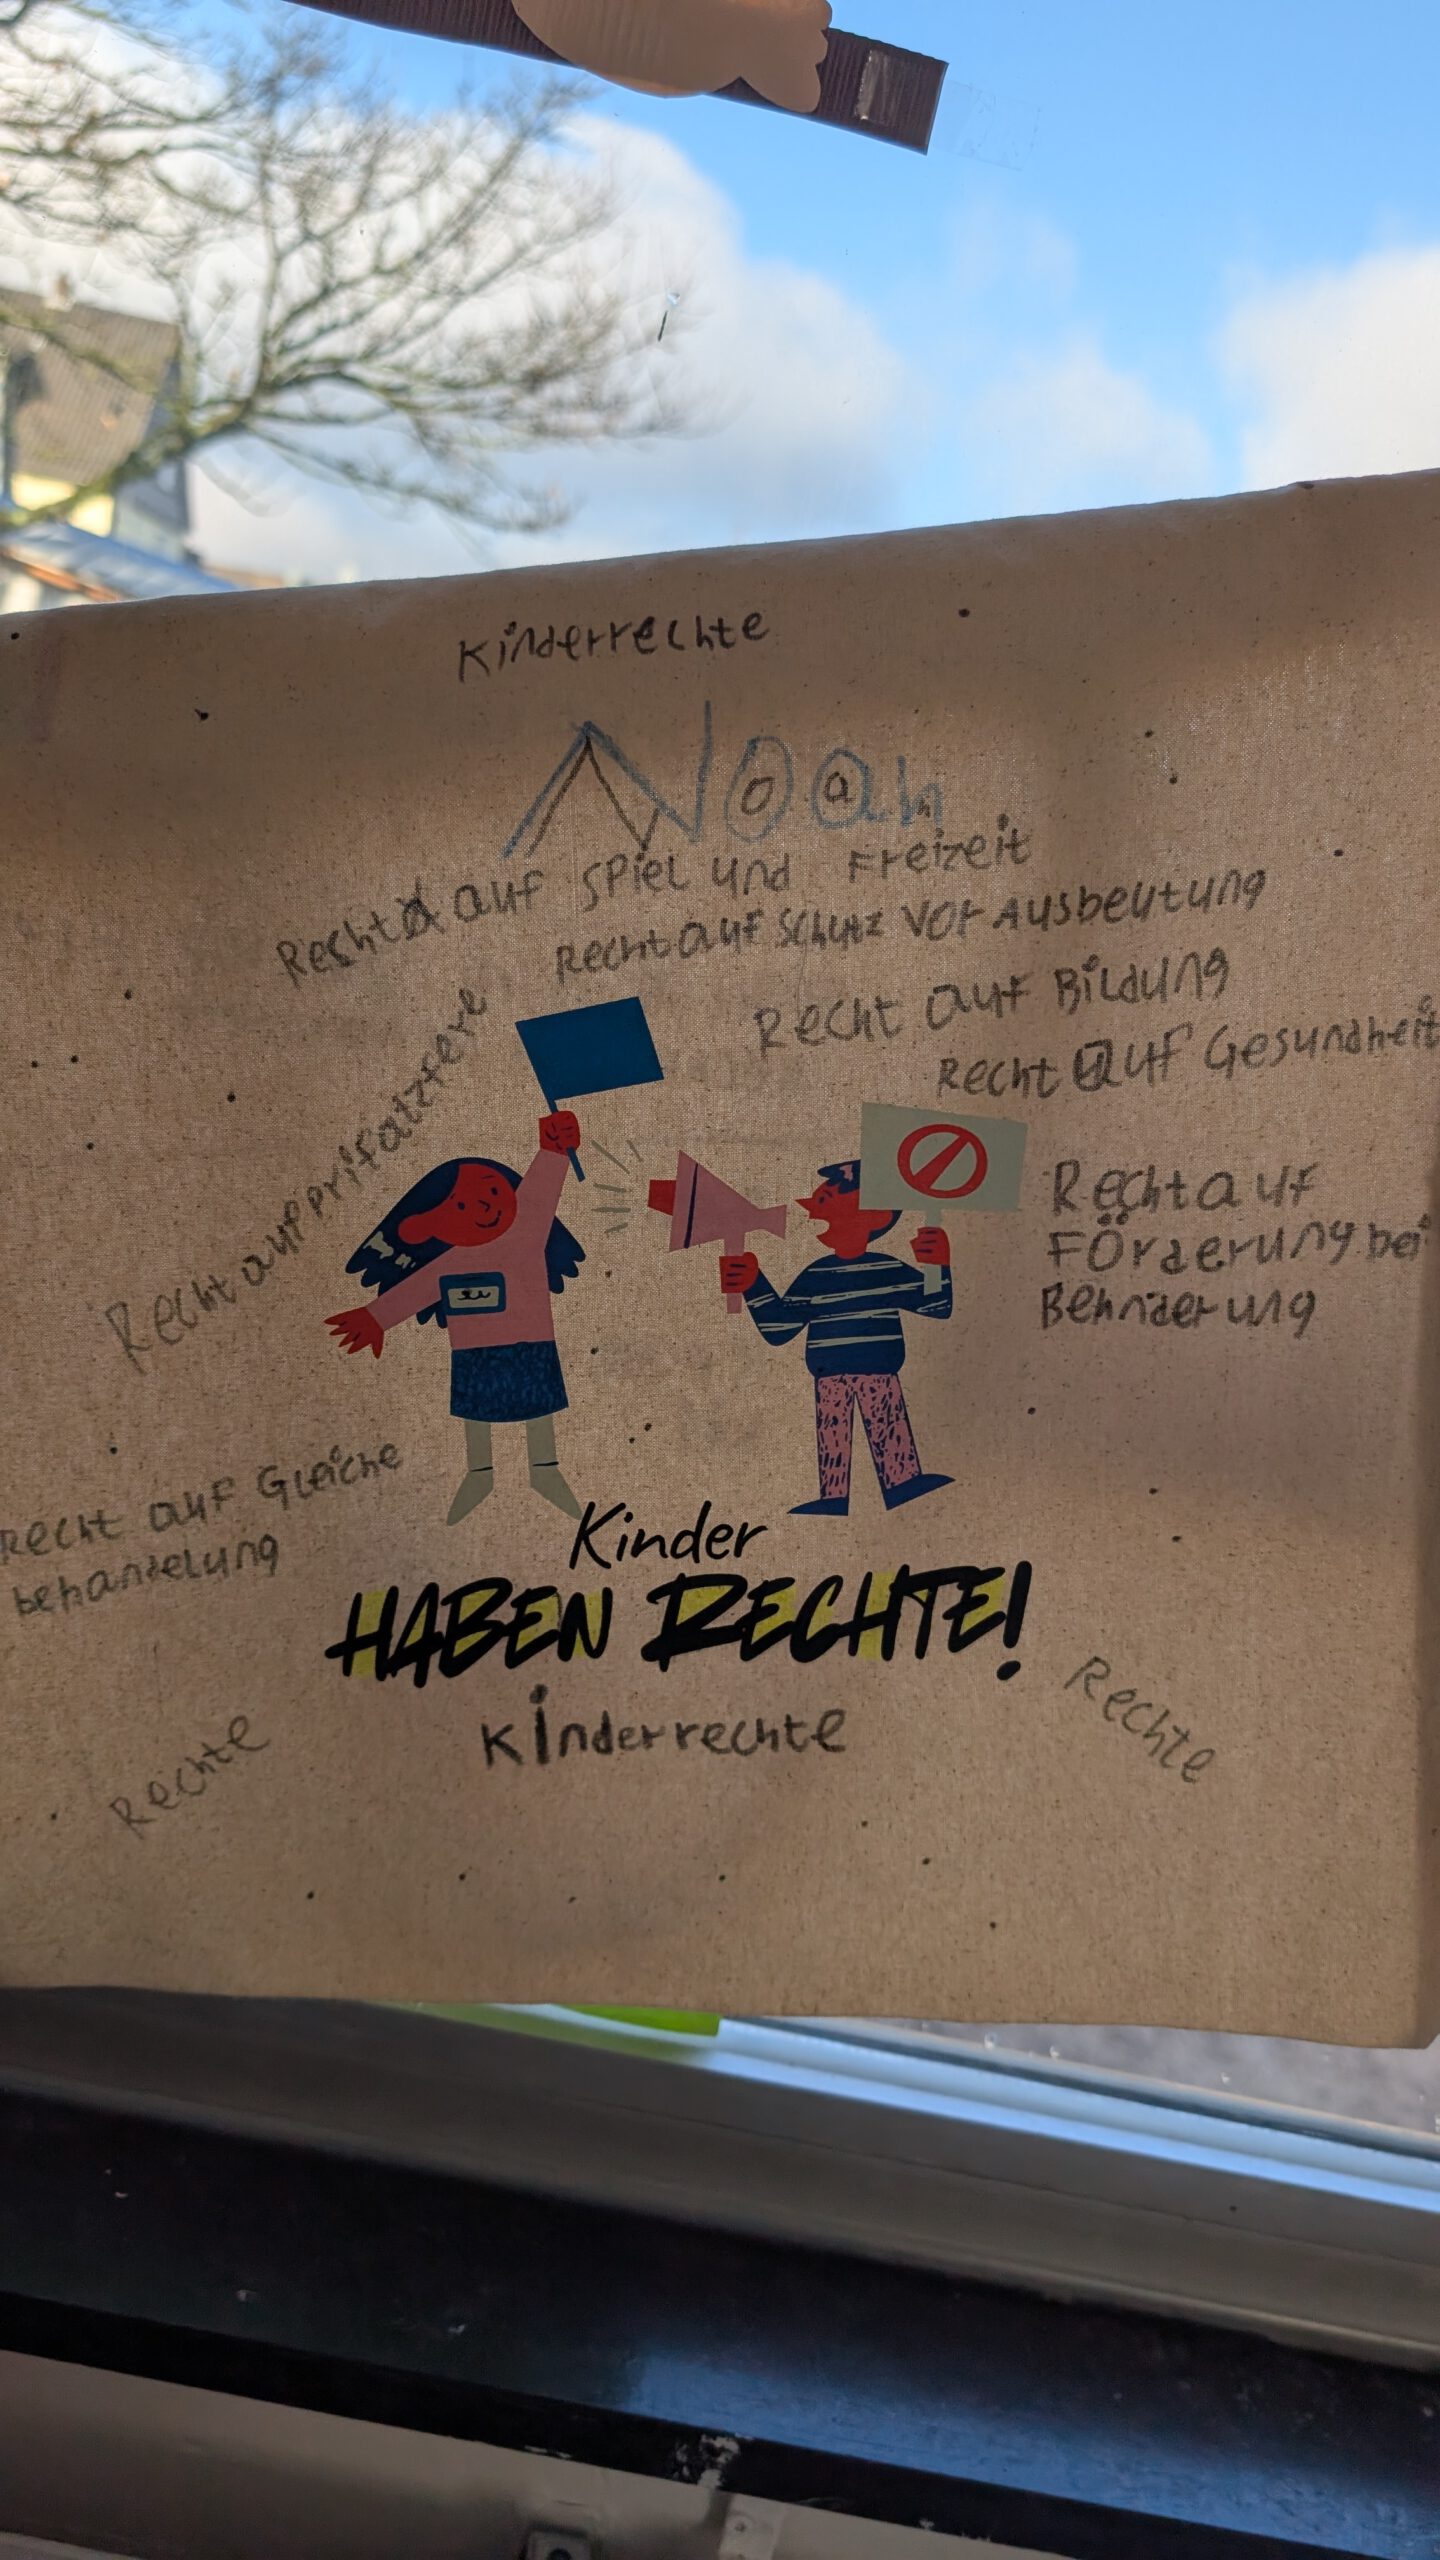 Kinderrechte
Noah
Recht auf Spiel und Freizeit
Recht auf Schutz vor Ausbeutung
Recht auf Bildung
Recht auf Gesundheit
Recht auf pprifatzfere
Recht auf
Förderung bei
Behniderung
recht auf Gleiche
behandelung
Kinder
HABEN RECHTE!
Kinderrechte
Rechte
Rechte